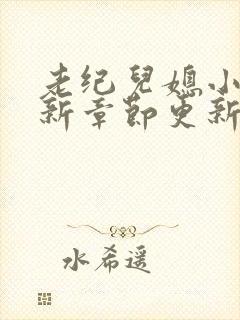 老纪兒媳小
新章節更新
水希遥